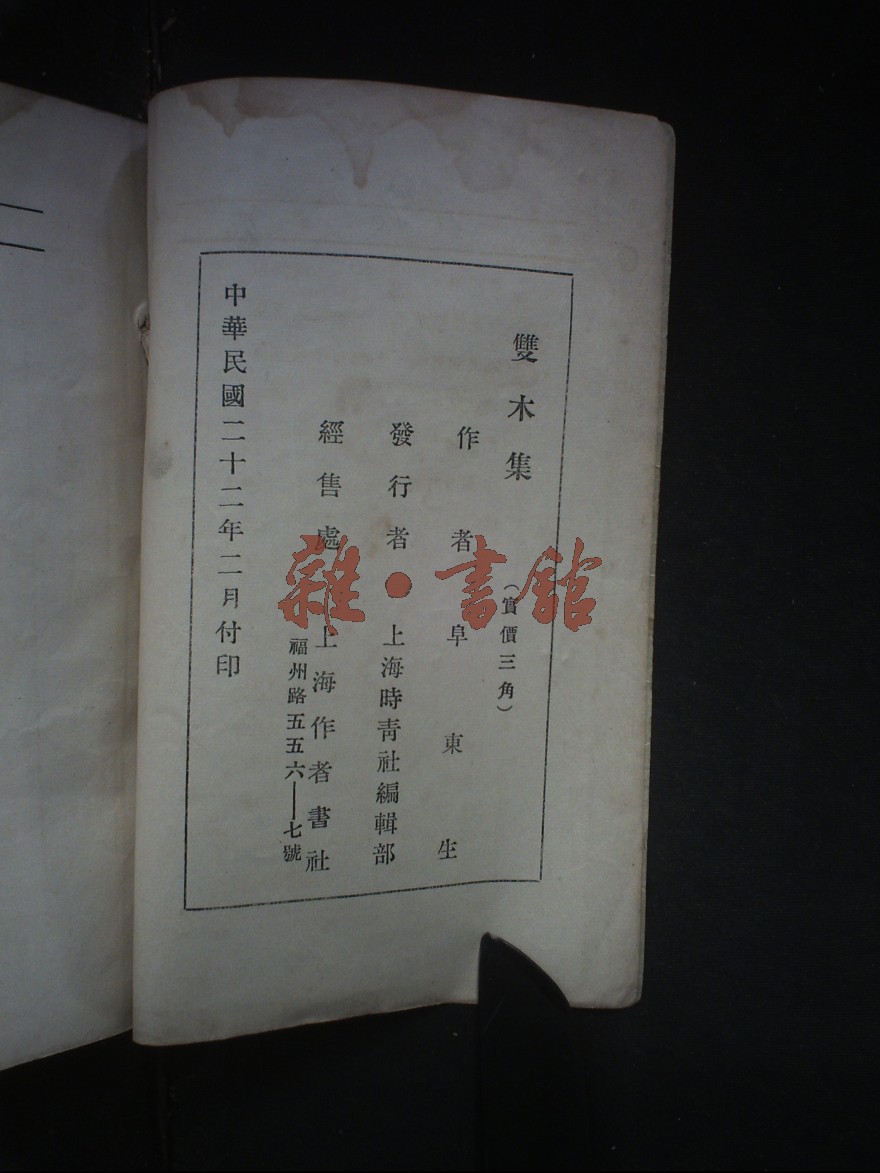 雙木集
（實價三角）
作者 阜東生
發行者 上海時青社編輯部
經售處 上海作者書社
福州路五五六——七號
中華民國二十二年二月付印
雜·書館